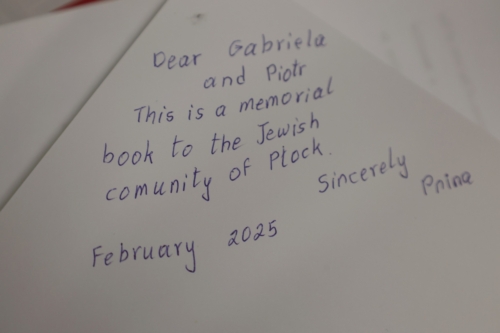 Dear Gabriela
and Piotr
This is a memorial
book to the Jewish
comunity of Ptock.
Sincerely
Pnina
February 2025